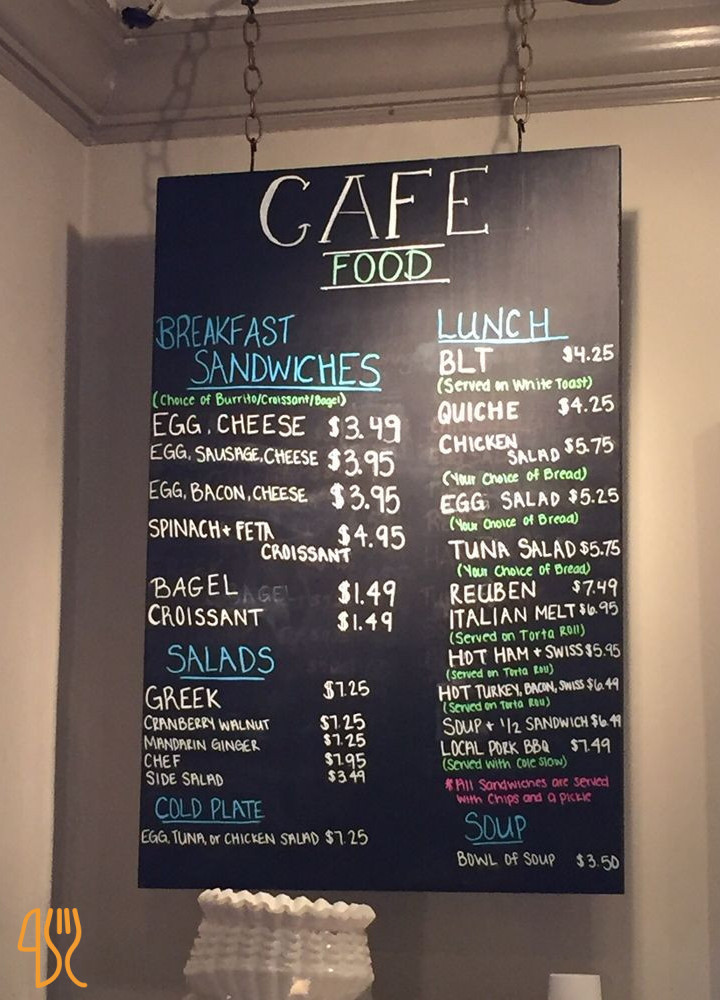 CAFE
FOOD
BREAKFAST
SANDWICHES
(Choice of Burrito/Croissant/Bagel)
EGG, CHEESE $3.49
EGG, SAUSAGE, CHEESE $3.95
EGG, BACON, CHEESE $3.95
SPINACH + FETA $4.95
CROISSANT
BAGEL $1.49
CROISSANT $1.49
SALADS
GREEK $7.25
CRANBERRY WALNUT $7.25
MANDARIN GINGER $7.25
CHEF $7.95
SIDE SALAD $3.49
COLD PLATE
EGG, TUNA, or CHICKEN SALAD $7.25
LUNCH
BLT $4.25
(Served on White Toast)
QUICHE $4.25
CHICKEN
SALAD $5.75
(Your Choice of Bread)
EGG SALAD $5.25
(Your Choice of Bread)
TUNA SALAD $5.75
(Your Choice of Bread)
REUBEN $7.49
ITALIAN MELT $6.95
(Served on Torta Roll)
HOT HAM + SWISS $5.95
(Served on Torta Roll)
HOT TURKEY, BACON, SWISS $6.49
(Served on Torta Roll)
SOUP + 1/2 SANDWICH $6.49
LOCAL PORK BBQ $7.49
(Served with Cole Slow)
*All Sandwiches are served
with Chips and a pickle
SOUP
BOWL OF SOUP $3.50